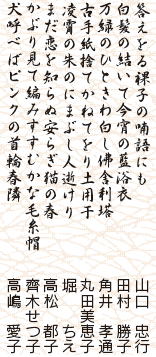 答えをる裸子の喃語にも
白髪の結いて今宵の藍浴衣
万緑のひときわ白し佛舎利塔
古手紙捨てかねてをり土用干
凌霄の朱のにまぶし人逝けり
まだ恋を知らぬ安らぎ猫の春
かぶり見て編みすすむかな毛糸帽
犬呼べばピンクの首輪春隣
山口 忠行
田村 勝子
角井 孝通
丸田美恵子
堀 ちえ
高松 都子
齊木せつ子
高嶋 愛子